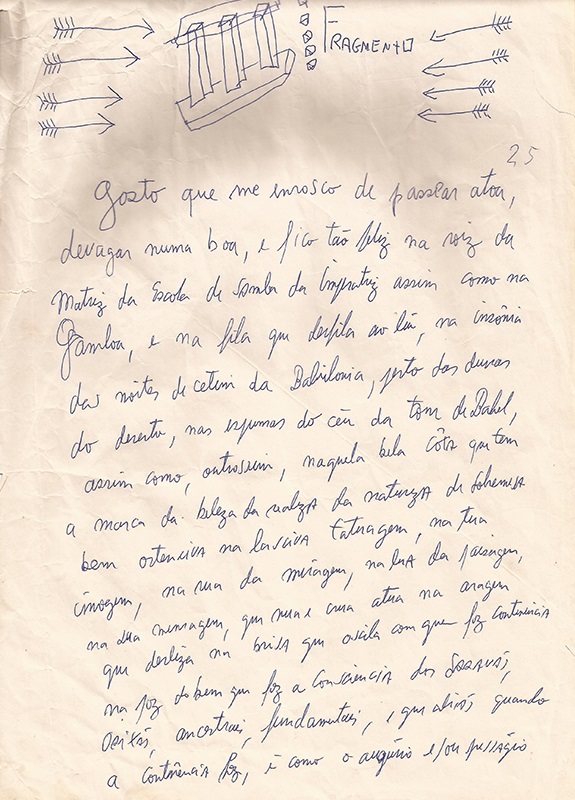 FRAGMENTO
25
Gosto que me enrosco de passear atoa,
devagar numa boa, e fico tão feliz na raiz da
Matriz da Escola de Samba da Imperatriz assim como na
Gamboa, e na fila que desfila ao léu, na insônia
das noites de cetim da Babilonia, perto das dunas
do deserto, nas espumas do céu da torre de Babel,
assim como, outrossim, naquela bela que tem
a marca da beleza da realeza da natureza de
bem ostenciva na lasciva tatuagem, na tua
imagem, na rua da miragem, na lua da paisagem,
na sua mensagem, que nua e crua atua na aragem
que desliza na brisa que oscila com que foz continência
na foz do bem que foz a consciência dos Saravás,
Orixás, ancestrais, fundamentais, e que aliás quando
a continência foz, é como o augúrio e/ou presságio